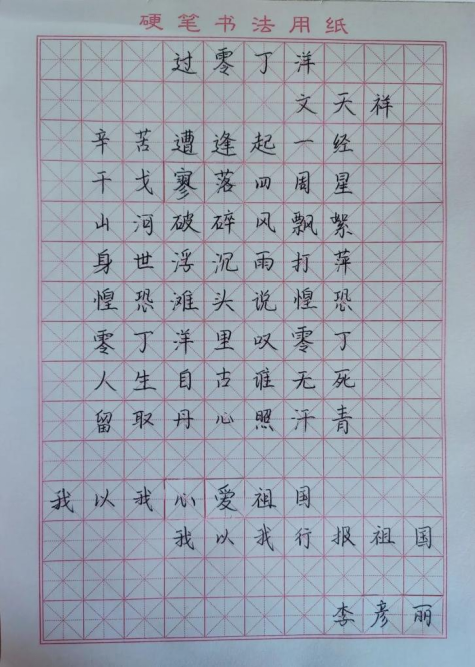 硬笔书法用纸
过零丁洋
文天祥
辛苦遭逢起一经
干戈寥落四周星
山河破碎风飘絮
身世浮沉雨打萍
惶恐滩头说惶恐
零丁洋里叹零丁
人生自古谁无死
留取丹心照汗青
我以我心爱祖国
我以我行报祖国
李彦丽